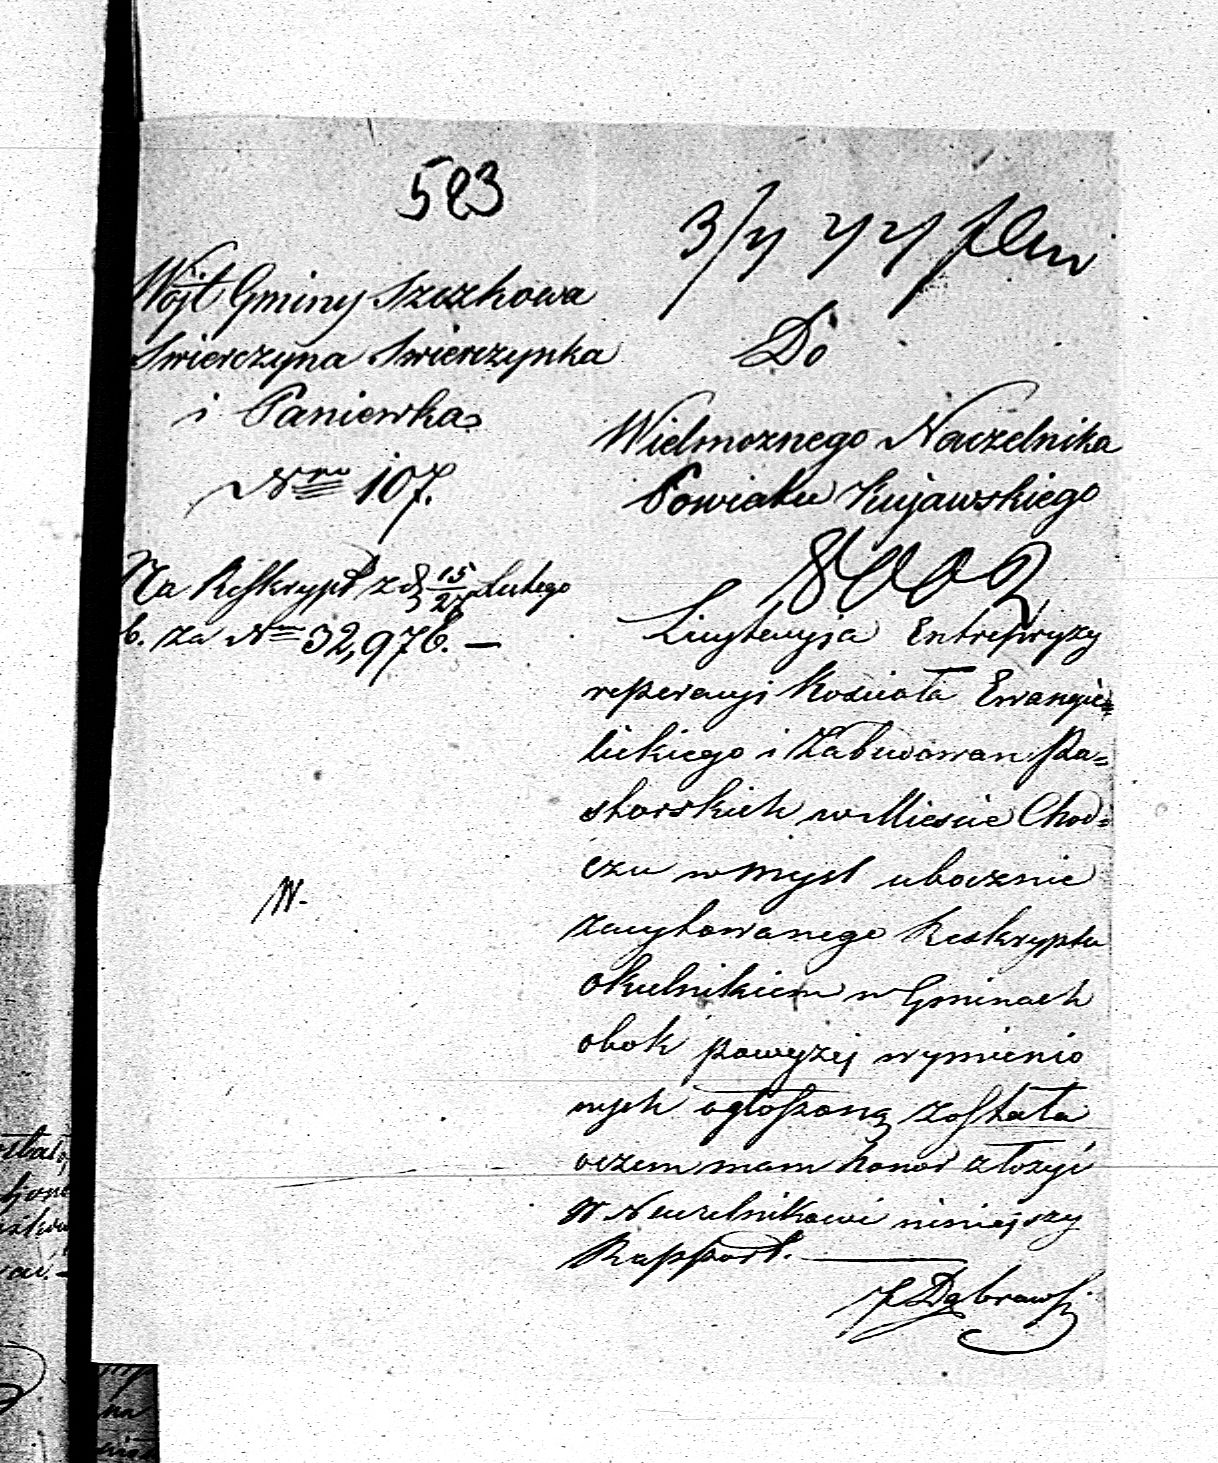 523
Wójt Gminy Szczkowa
Swierczyna Swierczynka
i Paniewka
Nro 107.
Na Reskrypt z d 15/27 Lutego
b. za Nrm 32,976. —
N.
3/4
Do
Wielmoznego Naczelnika
Powiatu Kujawskiego
8002
Licytacyja Entrepryzy
reperacyi Koscioła Ewangie=
lickiego i Zabudowan Pa=
storskich w Miescie Chod=
czu w mysl ubocznie
zacytowanego Reskryptu
okulnikiem w Gminach
obok powyzej wymienio
nych ogłoszoną została
oczem mam honor złozyć
W Naczelnikowi niniejszy
Rapport. —
Dąbrowski